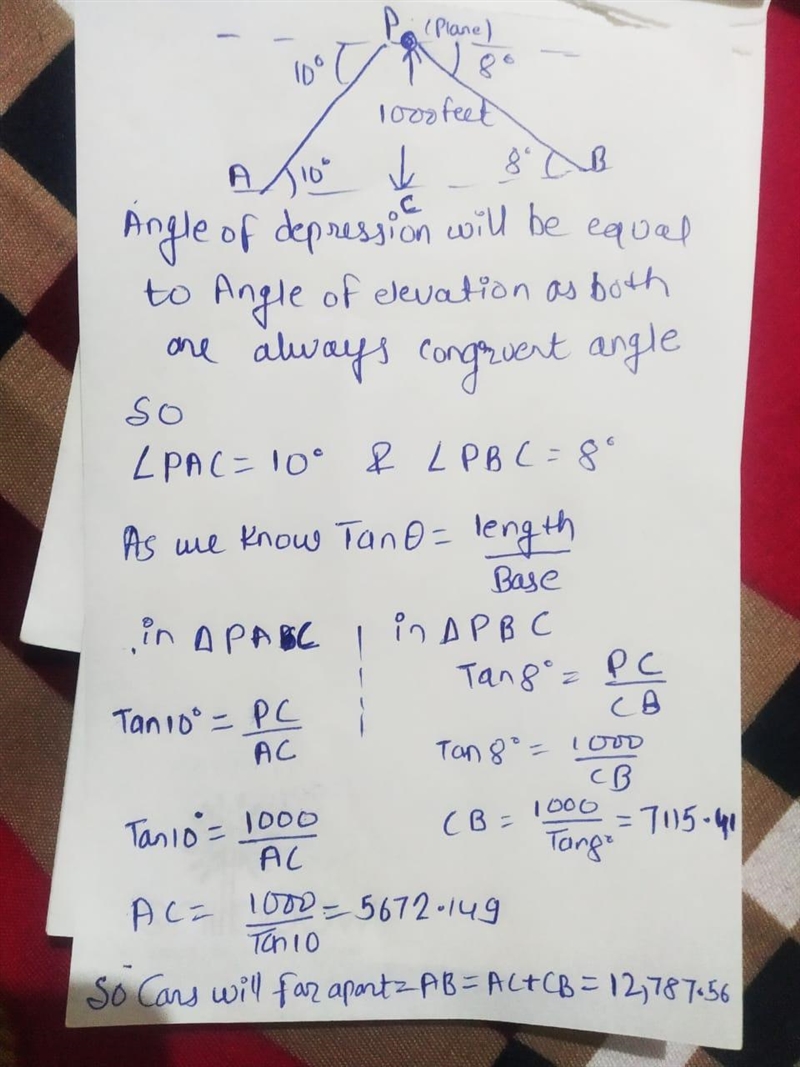 P (Plane)
10° 8°
1000feet
A 10° 8° B
C
Angle of depression will be equal
to Angle of elevation as both
are always congruent angle
SO
∠PAC = 10° & ∠PBC = 8°
As we know Tanθ = length/Base
in ΔPAC
Tan10° = PC/AC
Tan10° = 1000/AC
AC = 1000/Tan10 = 5672.149
in ΔPBC
Tan8° = PC/CB
Tan8° = 1000/CB
CB = 1000/Tan8° = 7115.41
So Cars will far apart = AB = AC+CB = 12,787.56